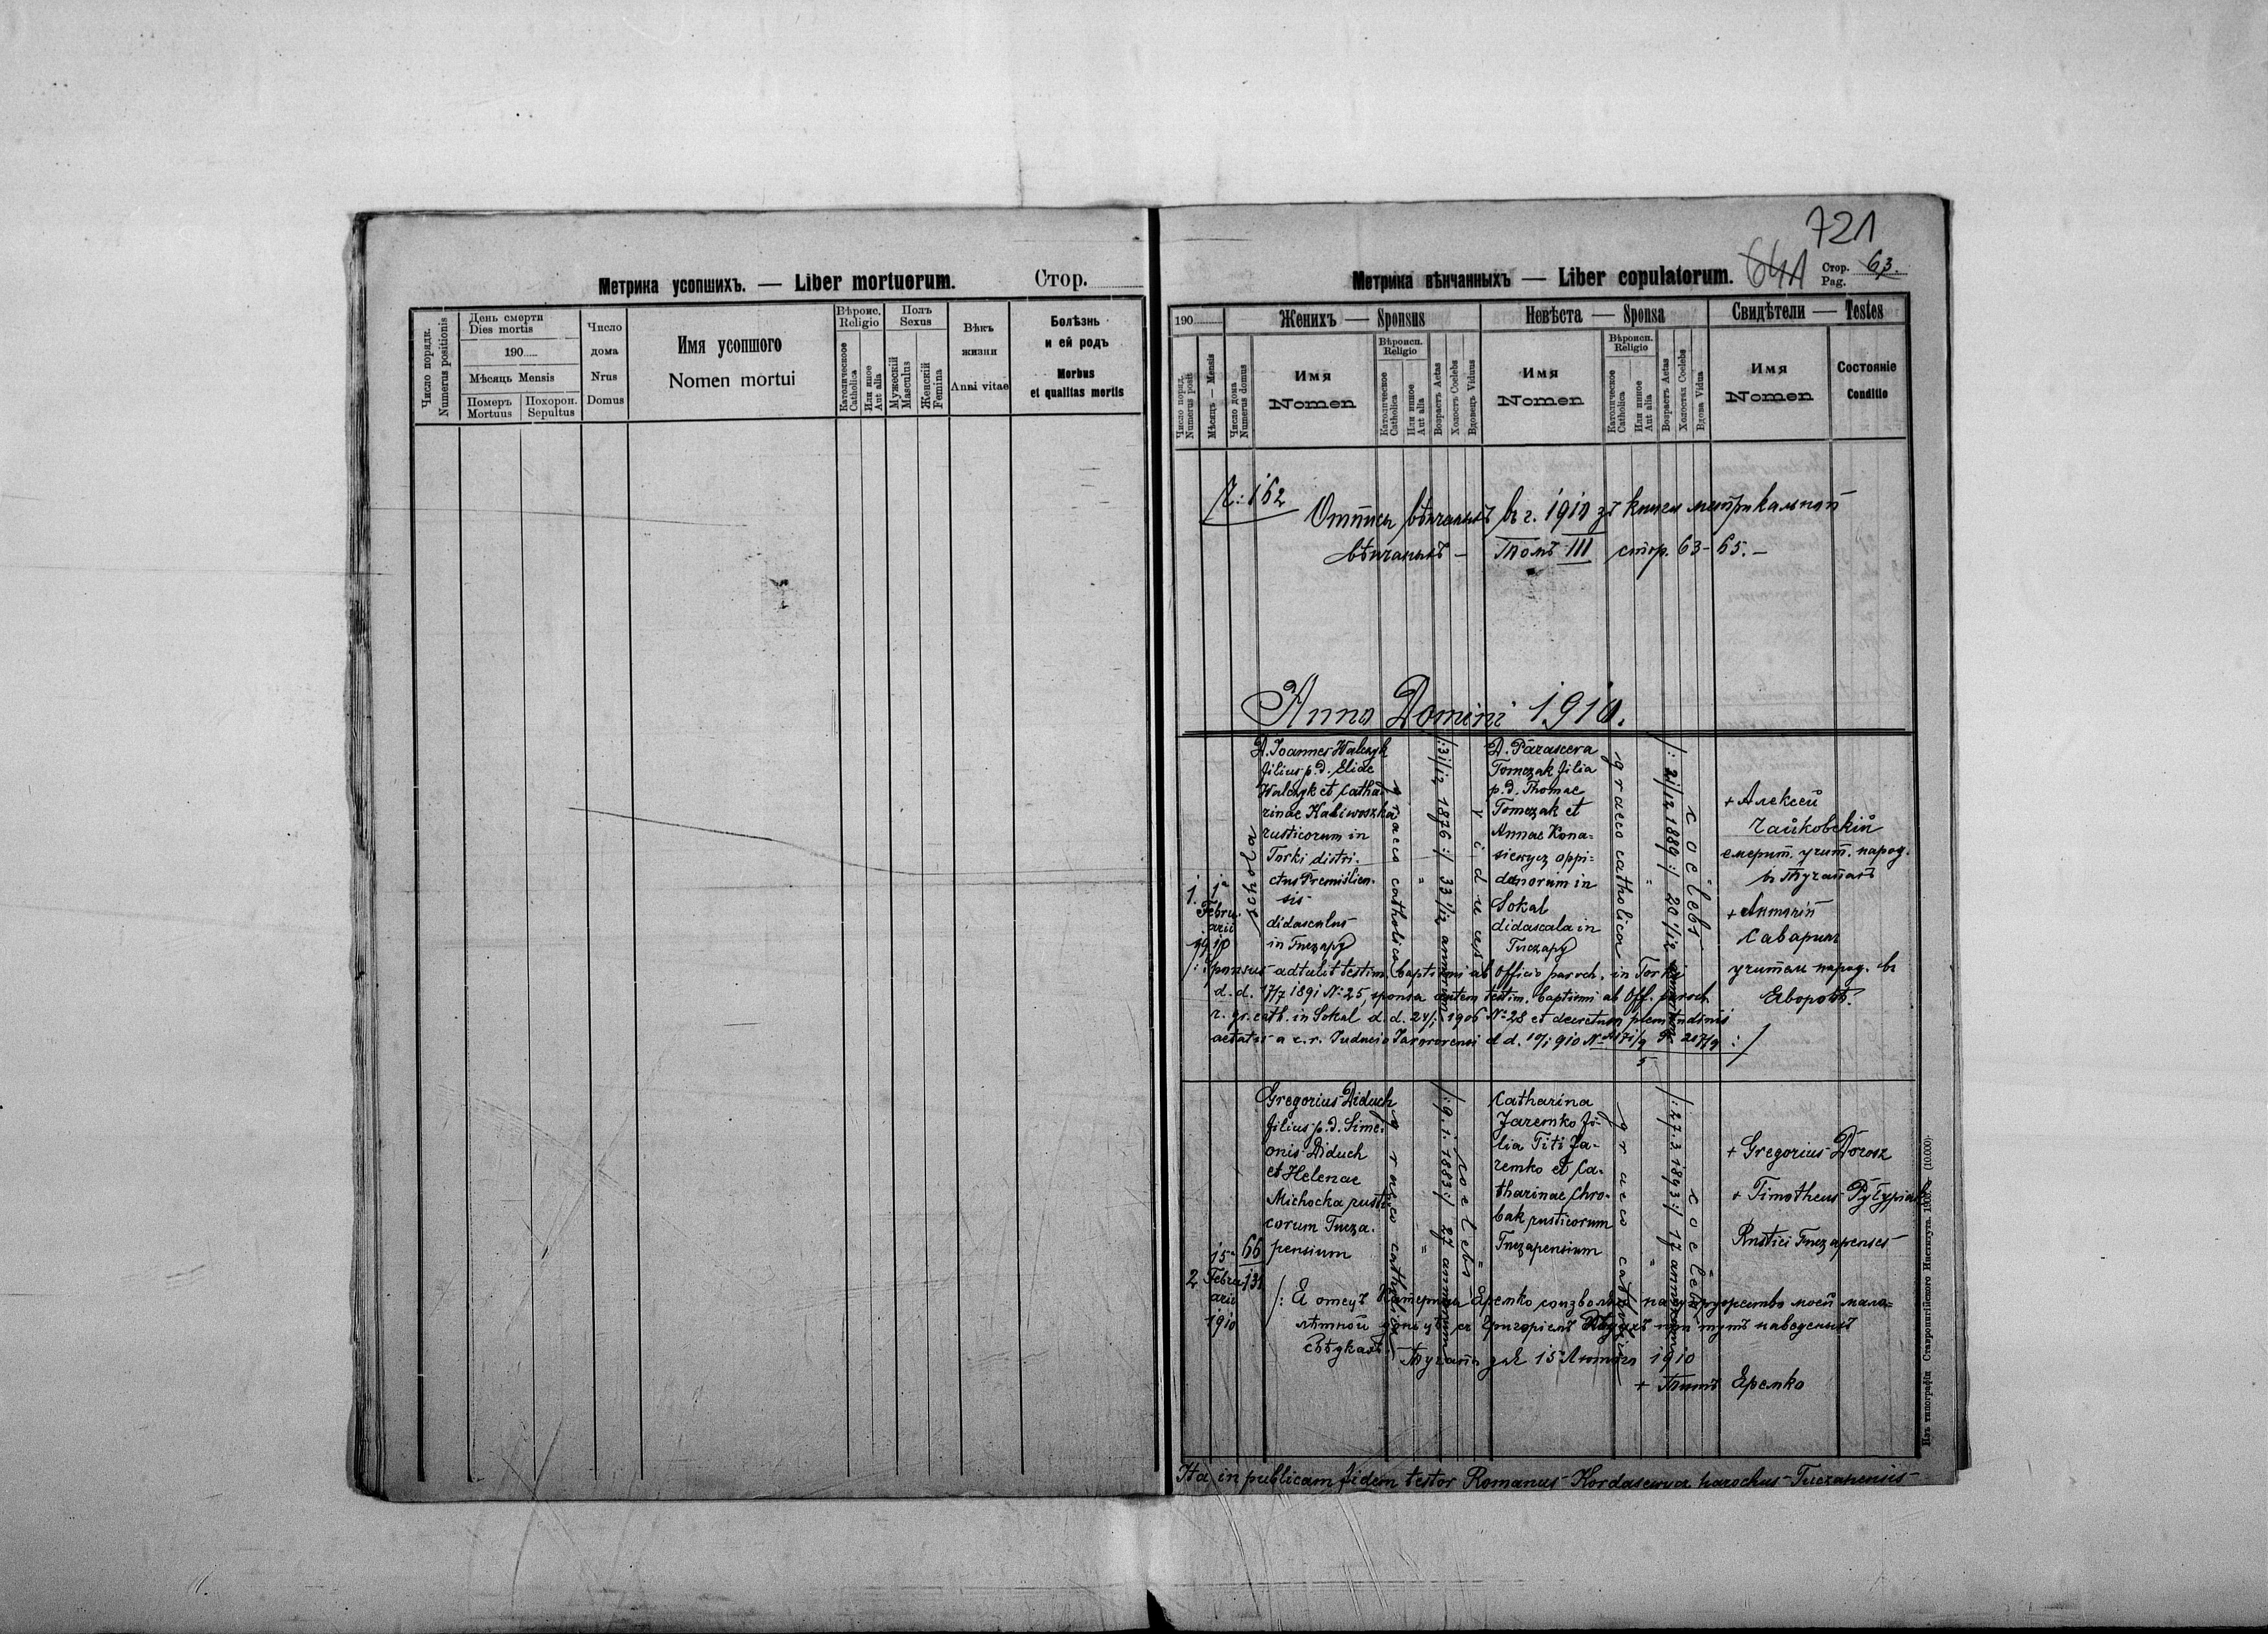 Метрика усопшихъ. — Liber mortuorum. Стор.
Число порядк. Numerus positionis
День смерти
Dies mortis
190
Мѣсяць Mensis
Померъ Mortuus
Похорон. Sepultus
Число
дома
Nrus
Domus
Имя усопшого
Nomen mortui
Вѣроис.
Religio
Католическоое Catholica
Или иное Aut alia
Полъ
Sexus
Мужескій Masculus
Женскій Femina
Вѣкъ
жизни
Anni vitae
Болѣзнь
и ей родъ
Morbus
et qualitas mortis
721
Метрика вѣнчанныхъ — Liber copulatorum. 64A Стор. Pag. 63.
190
Женихъ — Sponsus
Невѣста — Sponsa
Свидѣтели — Testes
Число поряд. Numerus posit
Мѣсяць — Mensis
Число дома Numerus domus
Имя
Nomen
Вѣроисп.
Religio
Католическое Catholica
Или иное Aut alia
Возрастъ Aetas
Холостъ Coelebs
Вдовець Viduus
Имя
Nomen
Вѣроисп.
Religio
Католическое Catholica
Или иное Aut alia
Возрастъ Aetas
Холостая Coelebs
Вдова Vidua
Имя
Nomen
Состояніе
Conditio
Ч: 162
Отпись вѣнчаныхъ в г. 1910 зъ книги метрикальной
вѣнчаныхъ — Томъ III стор. 63-65. —
Anno Domini 1910.
1.
1a
Febru-
arii
1910
D. Joannes Walczyk
filius p.d. Eliae
Walczyk et Catha-
rinae Kaliwoszka
rusticorum in
Torki distri-
ctus Premislien-
sis
didascalus
in Tuczapy
graeco catholica
"
/: 31/12 1876 :/ 33 1/12 annorum
viduus
D. Parasceva
Tomczak filia
p.d. Thomae
Tomczak et
Annae Kona-
siewycz oppi-
danorum in
Sokal
didascala in
Tuczapy
graeco catholica
"
/: 21/12 1889 :/ 20 1/12 annorum
coelebs
+ Алексей
Чайковскій
емерит. учит. народ.
в Тучапахъ
+ Антоній
Саварин
учитель народ. в
Яворовѣ.
/: Sponsus adtulit testim. baptismi ab Officio paroch. in Torki
d. d. 17/7 1891 N: 25, sponsa autem testim. baptismi ab Off. paroch
r. gr. cath. in Sokal d. d. 24/1 1906 No 28 et decretum plenitudinis
aetatis a c. r. Judicio Javoroviensi d d. 10/1 910
2
15a
Febru-
arii
1910
66
131
Gregorius Diduch
filius p.d. Sime-
onis Diduch
et Helenae
Michocka rusti-
corum Tucza-
pensium
graeco catholica
"
/: 9. 1. 1883 :/ 27 annorum
coelebs
"
Catharina
Jaremko fi-
lia Titi Ja-
remko et Ca-
tharinae Chro-
bak rusticorum
Tuczapensium
graeco catholica
"
/: 27.3 1893 :/ 17 annorum
coelebs
+ Gregorius Dorosz
+ Timotheus
Rustici Tuczapenses
/: Я отець Катерины Яремко соизволяю на супружество моей мало-
лѣтной донь съ Григоріемъ Дидухъ при тутъ наведеныхъ
свѣдкахъ.
Тучапы дня 15 Лютого 1910
+ Титъ Яремко
Ita in publicam fidem testor Romanus Kordasewicz parochus Tuczapensis
Изъ типографіи Ставропигійского Института. 1908. (10.000).